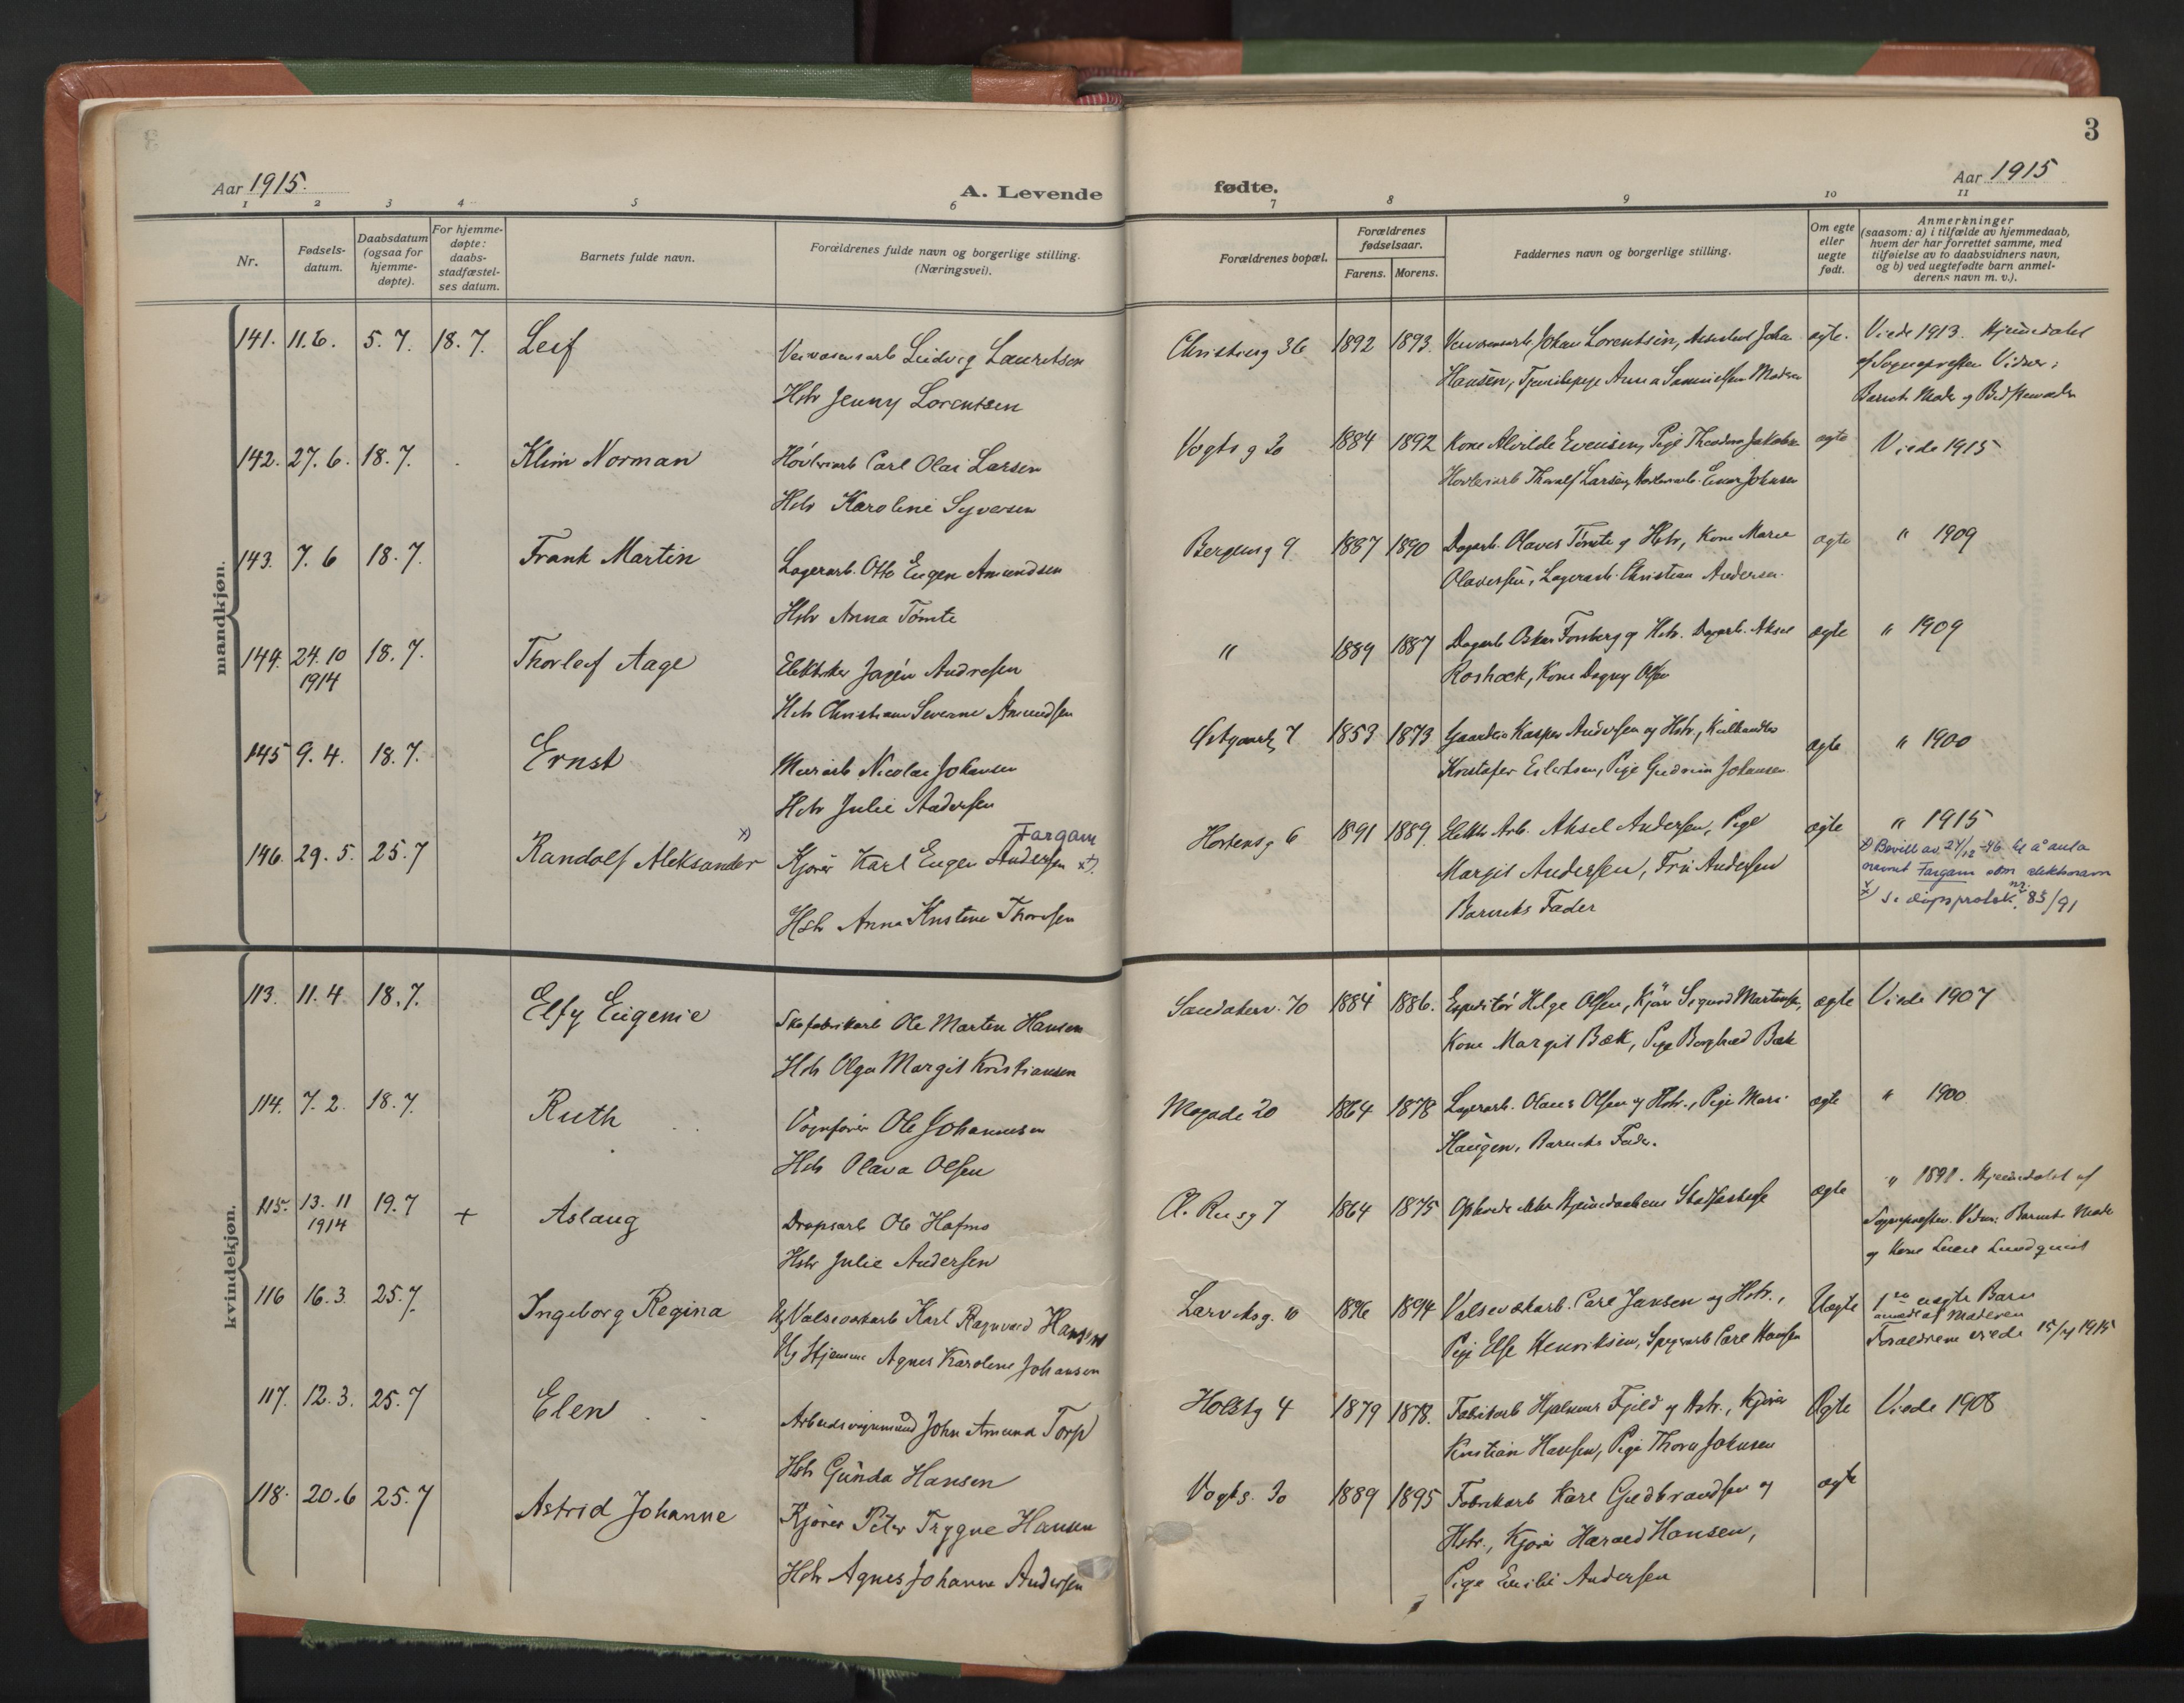 3
Aar 1915.
A. Levende
fødte.
Aar 1915
1 2 3 4 5 6 7 8 9 10 11
Nr.
Fødsels-
datum.
Daabsdatum
(ogsaa for
hjemme-
døpte).
For hjemme-
døpte:
daabs-
stadfæstel-
ses datum.
Barnets fulde navn.
Forældrenes fulde navn og borgerlige stilling.
(Næringsvei).
Forældrenes bopæl.
Forældrenes
fødselsaar.
Farens. Morens.
Faddernes navn og borgerlige stilling.
Om egte
eller
uegte
født.
Anmerkninger
(saasom: a) i tilfælde av hjemmedaab,
hvem der har forrettet samme, med
tilføielse av to daabsvidners navn,
og b) ved uegtefødte barn anmel-
derens navn m. v.).
mandkjøn.
141. 11.6. 5.7. 18.7. Leif
Ludvig Lauritsen
Hstr Jenny Lorentsen
36 1892 1893. Johan Lorentsen,
Hansen, Anna
egte.
Viede 1913. Hjemmedøbt
af Sognepresten
142. 27.6. 18.7. Klim Norman
Carl Olai Larsen
Hstr Karoline Syversen
Vogtsg 20 1884 1892 Kone Alvilde Evensen, Pige
Thoralf Larsen,
egte
Viede 1915
143. 7.6 18.7. Frank Martin
Lagerarb. Otto Eugen Amundsen
Hstr Anna Tømte
Bergensg 9. 1887 1890 Dagarb. Olaves Tømte og Hstr, Kone Marie
Olavessen, Lagerarb. Christian Andersen.
egte
" 1909
144. 24.10 18.7. Thorleif Aage
1914
Andresen
Hstr Severine Amundsen
" 1889 1887 Dagarb og Hstr. Dagarb. Aksel
Kone Dagny Olsen
egte
" 1909
145 9.4. 18.7. Ernst
Murarb Nicolai Johansen
Hstr Julie Andersen
7 1853 1873 Kasper Andersen og Hstr., Kulhandler
Kristofer Eilertsen, Pige Gudrun Johansen
egte
" 1900
146. 29.5. 25.7 Randolf Aleksander x)
Fargam
Kjører Karl Eugen Andersen xx).
Hstr Anna Kristine Thoresen
Hortensg 6 1891 1889. Elektr Arb. Aksel Andersen, Pige
Margit Andersen, Fru Andersen
Barnets Fader
egte
" 1915
x) Bevill av 27/12 -46 til å anta
navnet Fargam som slektsnavn
xx) Se dåpsprotok. nr. 85/91
kvindekjøn.
113. 11.4 18.7. Elfy Eugenie
Skofabrikarb Ole Martin Hansen
Hstr Olga Margit Kristiansen
Sandakerv. 70 1884 1886. Expeditør Helge Olsen, Kjører Sigurd
Kone Margit Bæk, Pige Borghild Bæk
egte
Viede 1907
114. 7.2. 18.7. Ruth
Vognfører Ole Johannesen
Hstr Olava Olsen
20 1864 1878 Lagerarb. Olaus Olsen og Hstr., Pige Mari
Haugen, Barnets Fader.
egte
" 1900
115. 13.11 19.7 + Aslaug
1914
Ole Hofmo
Hstr Julie Andersen
7 1864 1875
egte
" Hjemmedøbt af
Sognepresten. Vidner: Barnets Moder
og Kone Lundquist
116 16.3. 25.7. Ingeborg Regina
Ug Valseværkarb Karl Ragnvald Hansen
Ug Hjemme Agnes Karoline Johansen
Larviksg. 10 1896 1894 Valseværkarb. Carl Jansen og Hstr.,
Pige Else Henriksen, Carl Hansen
Uegte
1ste uegte Barn
anmeldt af Moderen
Forældrene viede 15/7 1915
117. 12.3. 25.7 Elen
John Amund Torp
Hstr Gunda Hansen
Holstg 4 1879 1878. Fabrikarb Hjalmar Fjeld og Hstr., Kjører
Kristian Hansen, Pige Thora Johnsen
Egte
Viede 1908
118. 20.6 25.7 Astrid Johanne
Kjører Peter Trygve Hansen
Hstr Agnes Johanne Andersen
Vogtsg. 20 1889 1895 Fabrikarb Karl Gudbrandsen og
Hstr., Kjører Harald Hansen,
Pige Emilie Andersen
egte